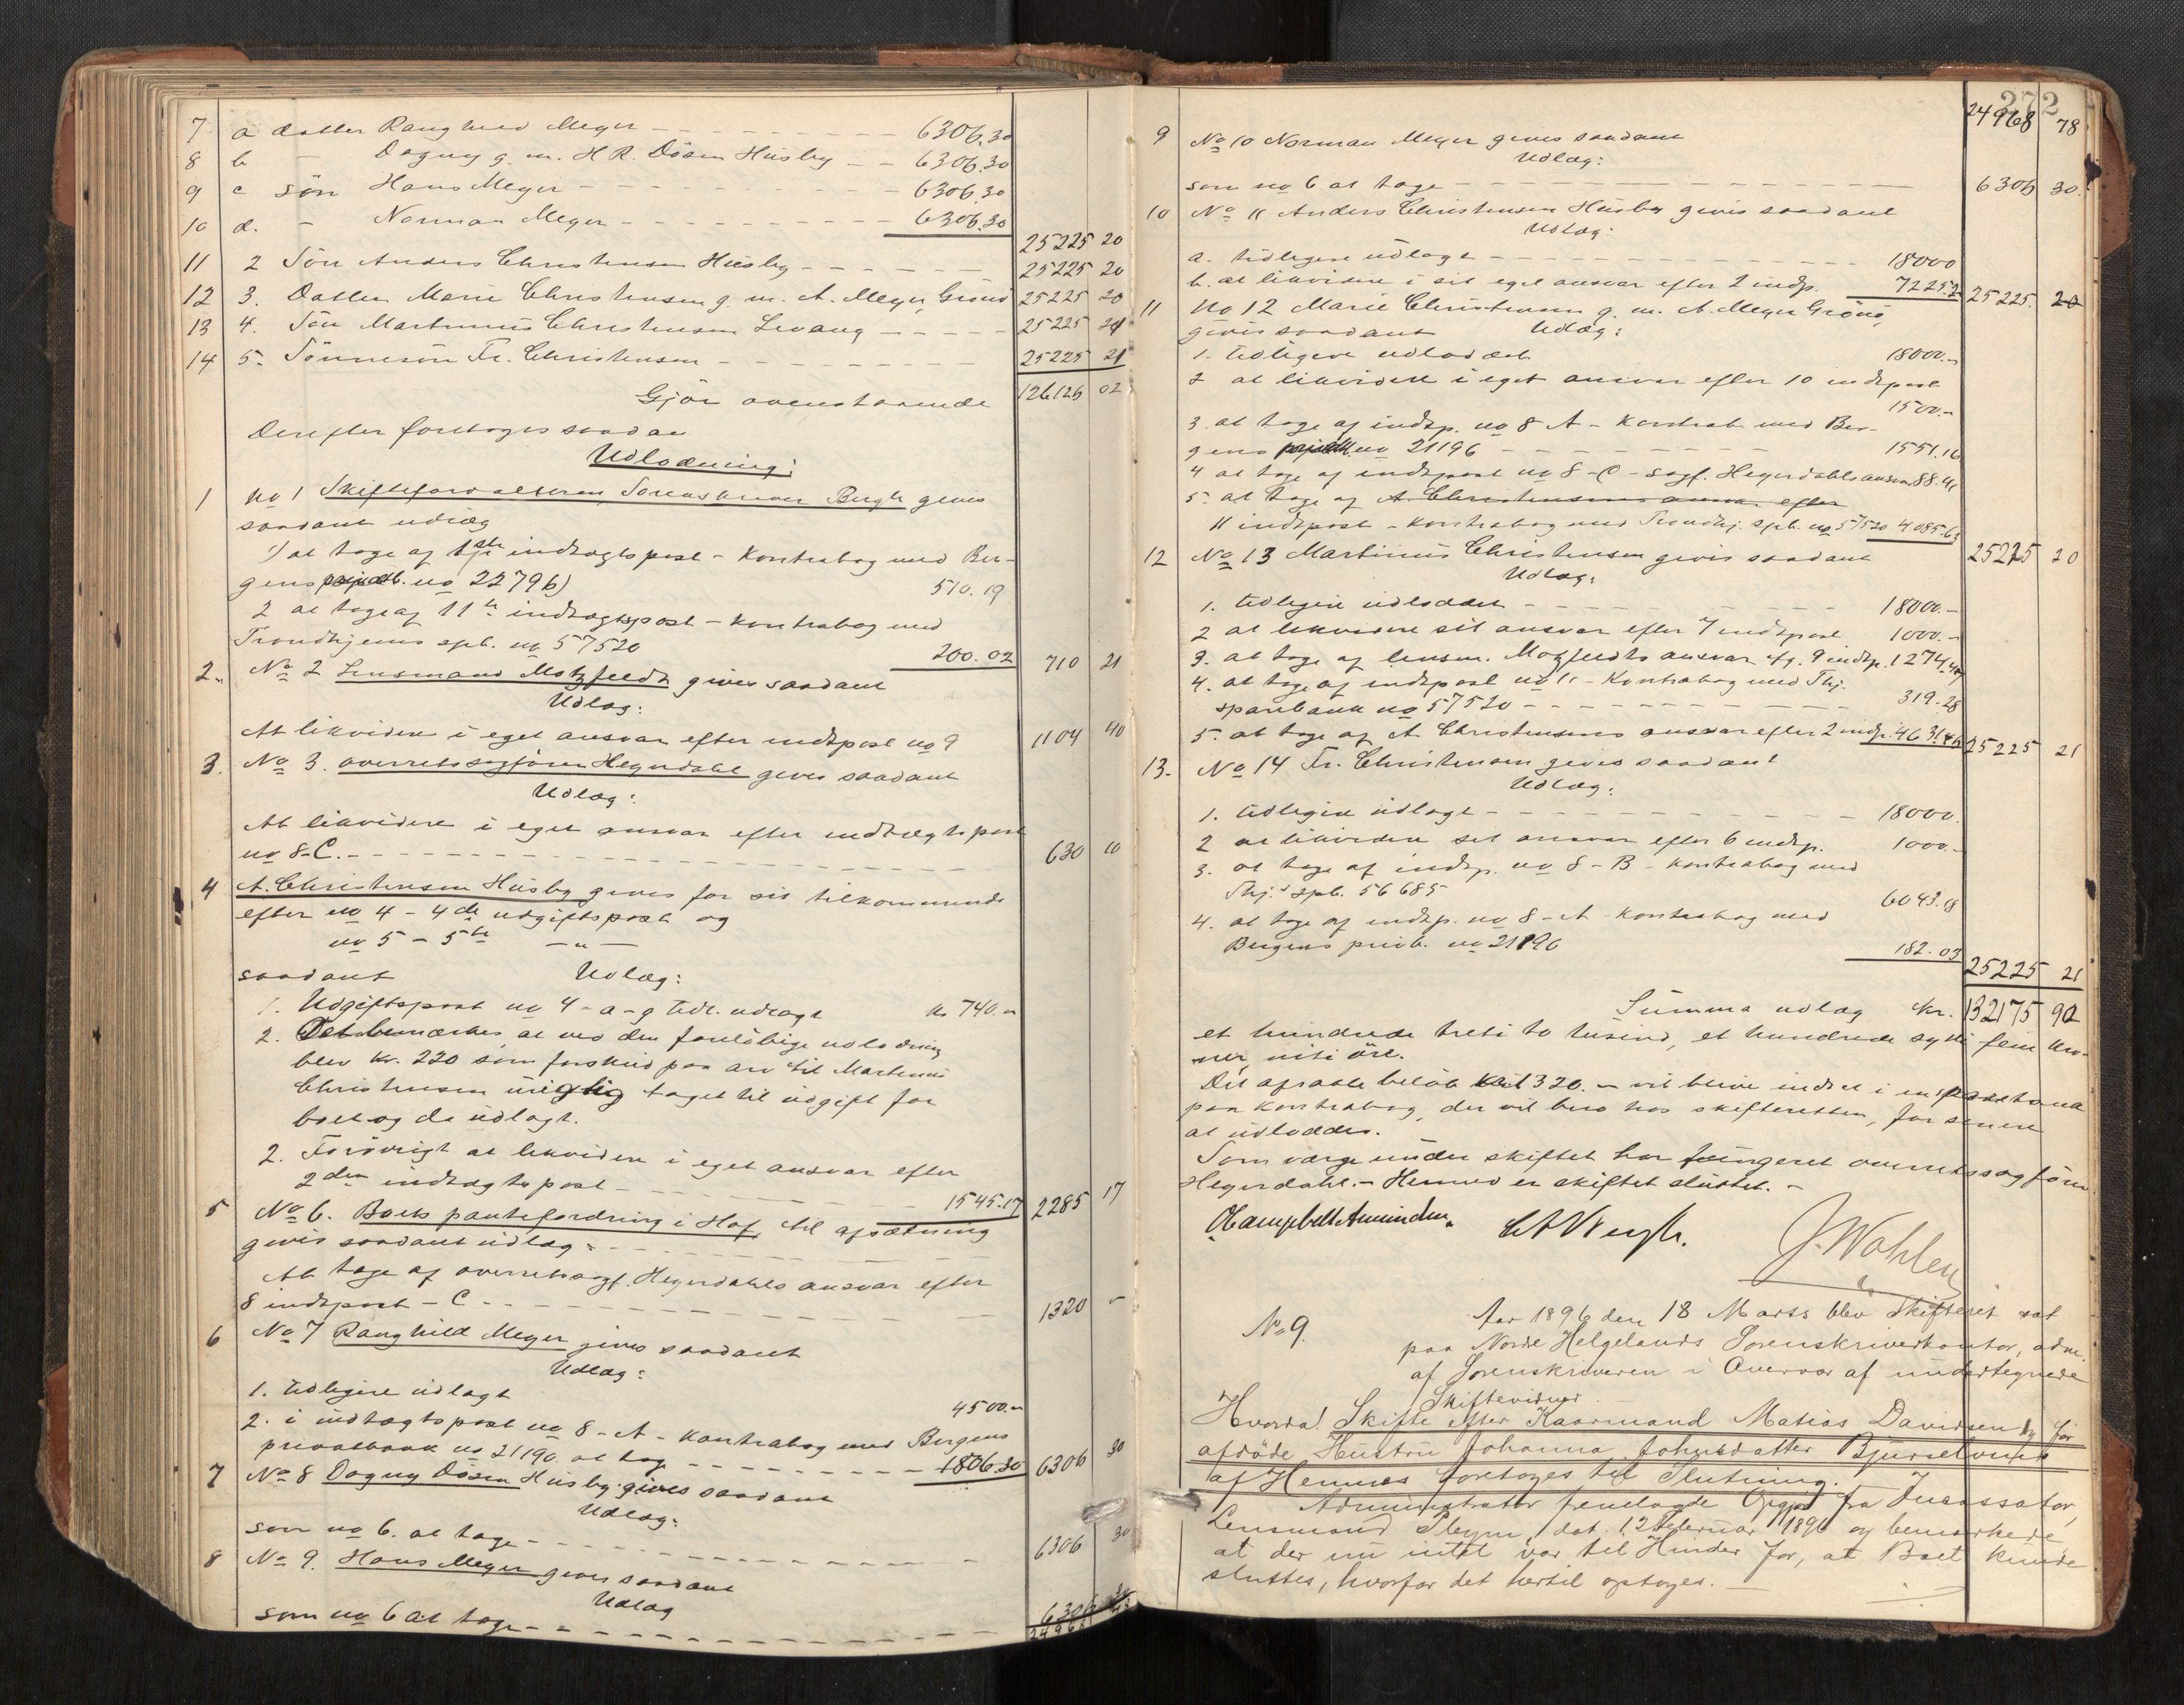 7 a datter Ranghild Meyer - - - 6306.30
8 b - Dagny g. m. H R. Dösen Husby - - 6306.30
9 c sön Hans Meyer - - - 6306.30
10 d. - Norman Meyer - - - 6306.30
25225 20
11 2 Sön Anders Christensen Husby - - - 25225 20
12 3. Datter Marie Christensen g. m. A. Meyer, Grönö 25225 20
13 4. Sön Martinus Christensen Levang - - - 25225 21
14 5. Sönnesön Fr. Christensen - - - 25225 21
Gjör ovenstaaende 126126 02
Derefter foretoges saadan
Udlodning:
1 No 1 Skifteforvalteren Sorenskriver Bergh gives
saadant udlæg
1) at tage af 1ste indtægtspost - Kontrabog med Ber-
gens privatb. no 22796) 510.19
2 at tage af 11te indtægtspost - kontrabog med
Trondhjems spb. no 57520 200.02 710 21
2. No 2 Lensmand Motzfeldt gives saadant
Udlæg:
At likvidere i eget ansvar efter indtpost no 9 1104 40
3. No 3. overretssagförer Heyerdahl gives saadant
Udlæg:
At likvidere i eget ansvar efter indtægtspost
no 8-C. - - - 630 10
4 A. Christensen Husby gives for sit tilkommende
efter no 4 - 4de udgiftspost og
no 5 - 5te - " -
saadant Udlæg:
1. Udgiftspost no 4 - a-g tidl. udlagt kr 740.-
2. Det bemærkes, at ved den foreløbige udlodning
blev kr. 220 som forskud paa arv til Martinus
Christensen urigtig taget til udgift for
boet og da udlagt.
2. Forövrigt at likvidere i eget ansvar efter
2den indtægtspost - - - 1545.17 2285 17
5 No 6. Boets pantefordring i Hof til afsætning
gives saadant udlæg: - - -
At tage af overretssagf. Heyerdahls ansvar efter
8 indtpost - C - - - 1320 -
6 No 7 Ranghild Meyer gives saadant
Udlæg:
1. tidligere udlagt 4500.-
2. i indtægtspost no 8 - A - Kontrabog med Bergens
privatbank no 21190 at tage - - - 1806.30 6306 30
7 No 8 Dagny Dösen Husby gives saadant
Udlæg:
som no 6. at tage - - - 6306 30
8 No 9. Hans Meyer gives saadant
Udlæg
som no 6 at tage - - - 6306 30
24968
272
24968 78
9 No 10 Norman Meyer gives saadant
Udlæg:
som no 6 at tage - - - 6306 30.
10 No 11 Anders Christensen Husby gives saadant
Udlæg:
a. tidligere udlagt - - - 18000
b. at likvidere i sit eget ansvar efter 2 indtp. 7225.2 25225. 20
11 No 12 Marie Christensen g. m. A. Meyer Grönö,
gives saadant Udlæg:
1. tidligere udloddet 18000.-
2 at likvidere i eget ansvar efter 10 indtpost
1500.-
3. at tage af indtp. no 8 A - Kontrab. med Ber-
gens privatb. no 21196 - - - 1551.16
4 at tage af indtpost no 8 - C - sagf. Heyerdahls ansvar 88.41
5. at tage af A. Christensens ansvar efter
11 indtpost - Kontrabog med Trondhj. spb. no 57520 4085.63
25225 20
12 No 13 Martinus Christensen gives saadant
Udlæg:
1. tidligere udloddet - - - 18000.-
2 at likvidere sit ansvar efter 7 indtpost 1000.-
3. at tage af lensm. Motzfeldts ansvar efg. 9 indtp. 1274.40
4. at tage af indtpost no 11 - Kontrabog med Thj.
sparebank no 57520 - - - 319.28
5. at tage af A Christensens ansvar efter 2 indtp. 4631.46 25225 21
13. No 14 Fr. Christensen gives saadant
Udlæg:
1. tidligere udlagt - - - 18000.
2 at likvidere sit ansvar efter 6 indtp. 1000.-
3. at tage af indtp. no 8 - B - kontrabog med
Thj.s spb. 56685 6043.18
4. at tage af indtp. no 8 - A - kontrabog med
Bergens privb. no 21190 182.03
25225 21
Summa udlæg kr. 132175 90
et hundrede treti to tusind, et hundrede sytti fem kro-
ner, niti öre.
Det afsatte belöb kr 1320.- vil blive indsat i en sparebank
paa kontrabog, der vil bero hos skifteretten, for senere
at udloddes.
Som værge under skiftet har fungeret overretssagförer
Heyerdahl. - Hermed er skiftet sluttet. -
O Campbell Amundsen CA Bergh. J. Wahlen
No 9. Aar 1896 den 18 Marts blev Skifteret sat
paa Nordre Helgelands Sorenskriverkontor, adm.
af Sorenskriveren i Overvær af undertegnede
Skiftevidner.
Hvorda! Skifte efter Kaarmand Matias Davidsen og før
afdöde Hustru Johanna Johnsdatter
af Hemnes foretoges til Slutning.
Administrator fremlagde Opgjør fra Incassator,
Lensmand Pleym, dat. 12 Februar 1896 og bemærkede,
at der nu intet var til Hinder for, at Boet kunde
sluttes, hvorfor det hertil optoges. -